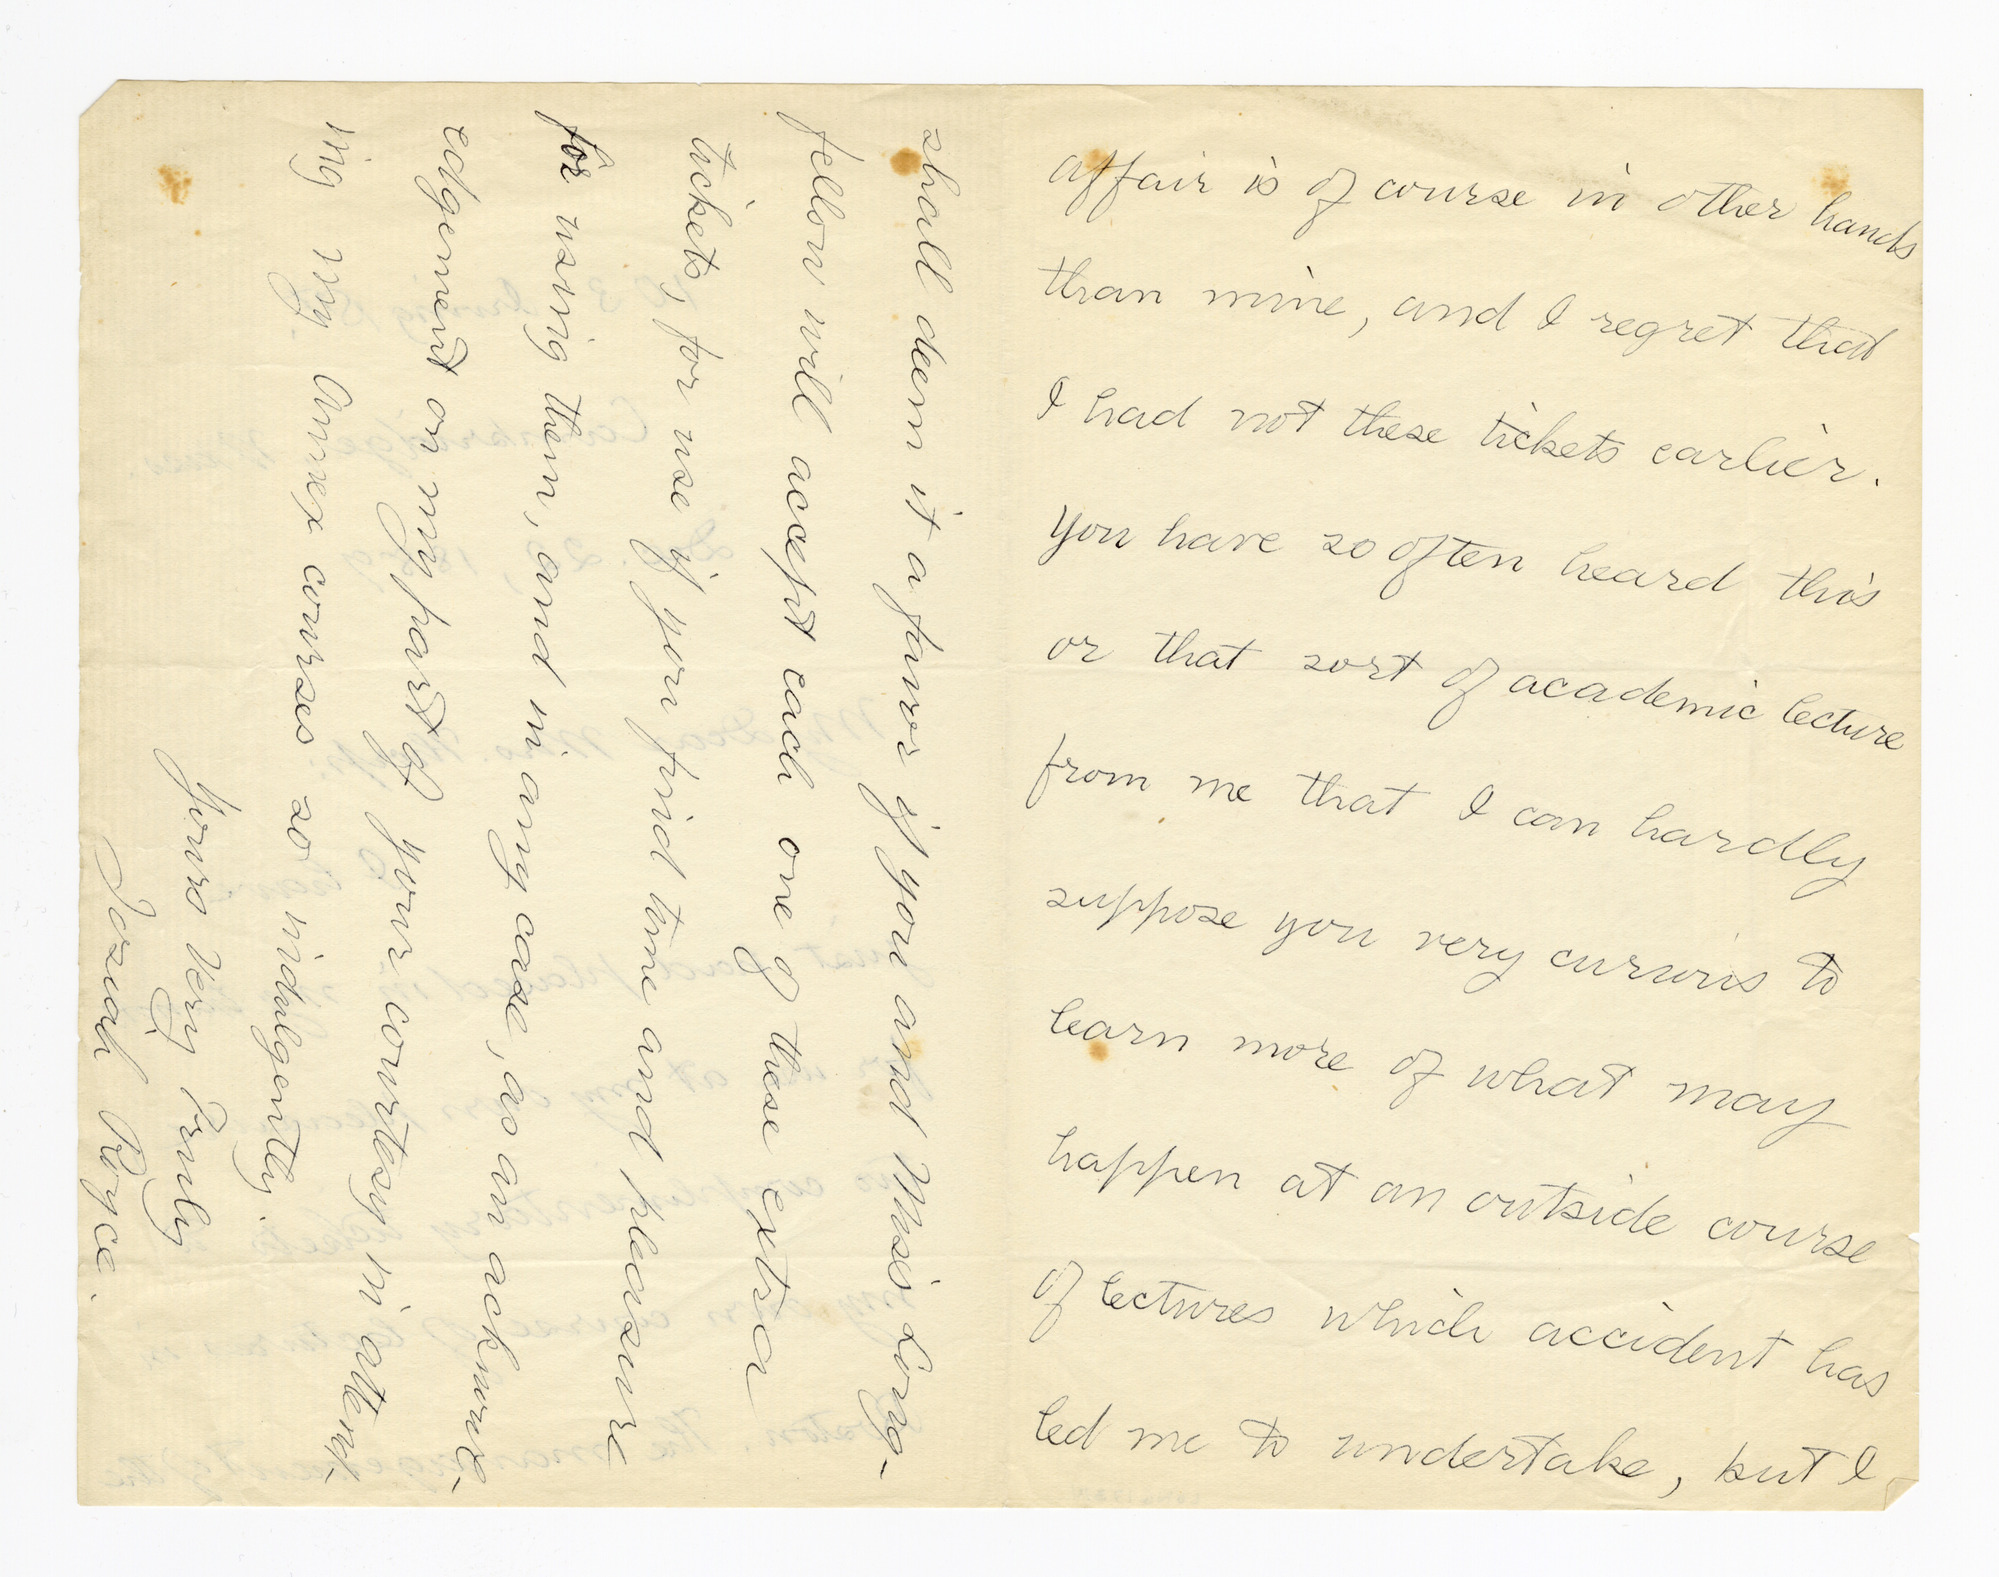 affair is of course in other hands
than mine, and I regret that
I had not these tickets earlier.
You have so often heard this
or that sort of academic lecture
from me that I can hardly
suppose you very curious to
learn more of what may
happen at an outside course
of lectures which accident has
led me to undertake, but I
shall deem it a favor if you and Miss Long-
fellow will accept each one of these extra
tickets, for use if you find time and pleasure
for using them, and in any case, as an acknowl-
edgement on my part of your courtesy in attend-
ing my Annex courses so indulgently.
Yours Very Truly
Josiah Royce.